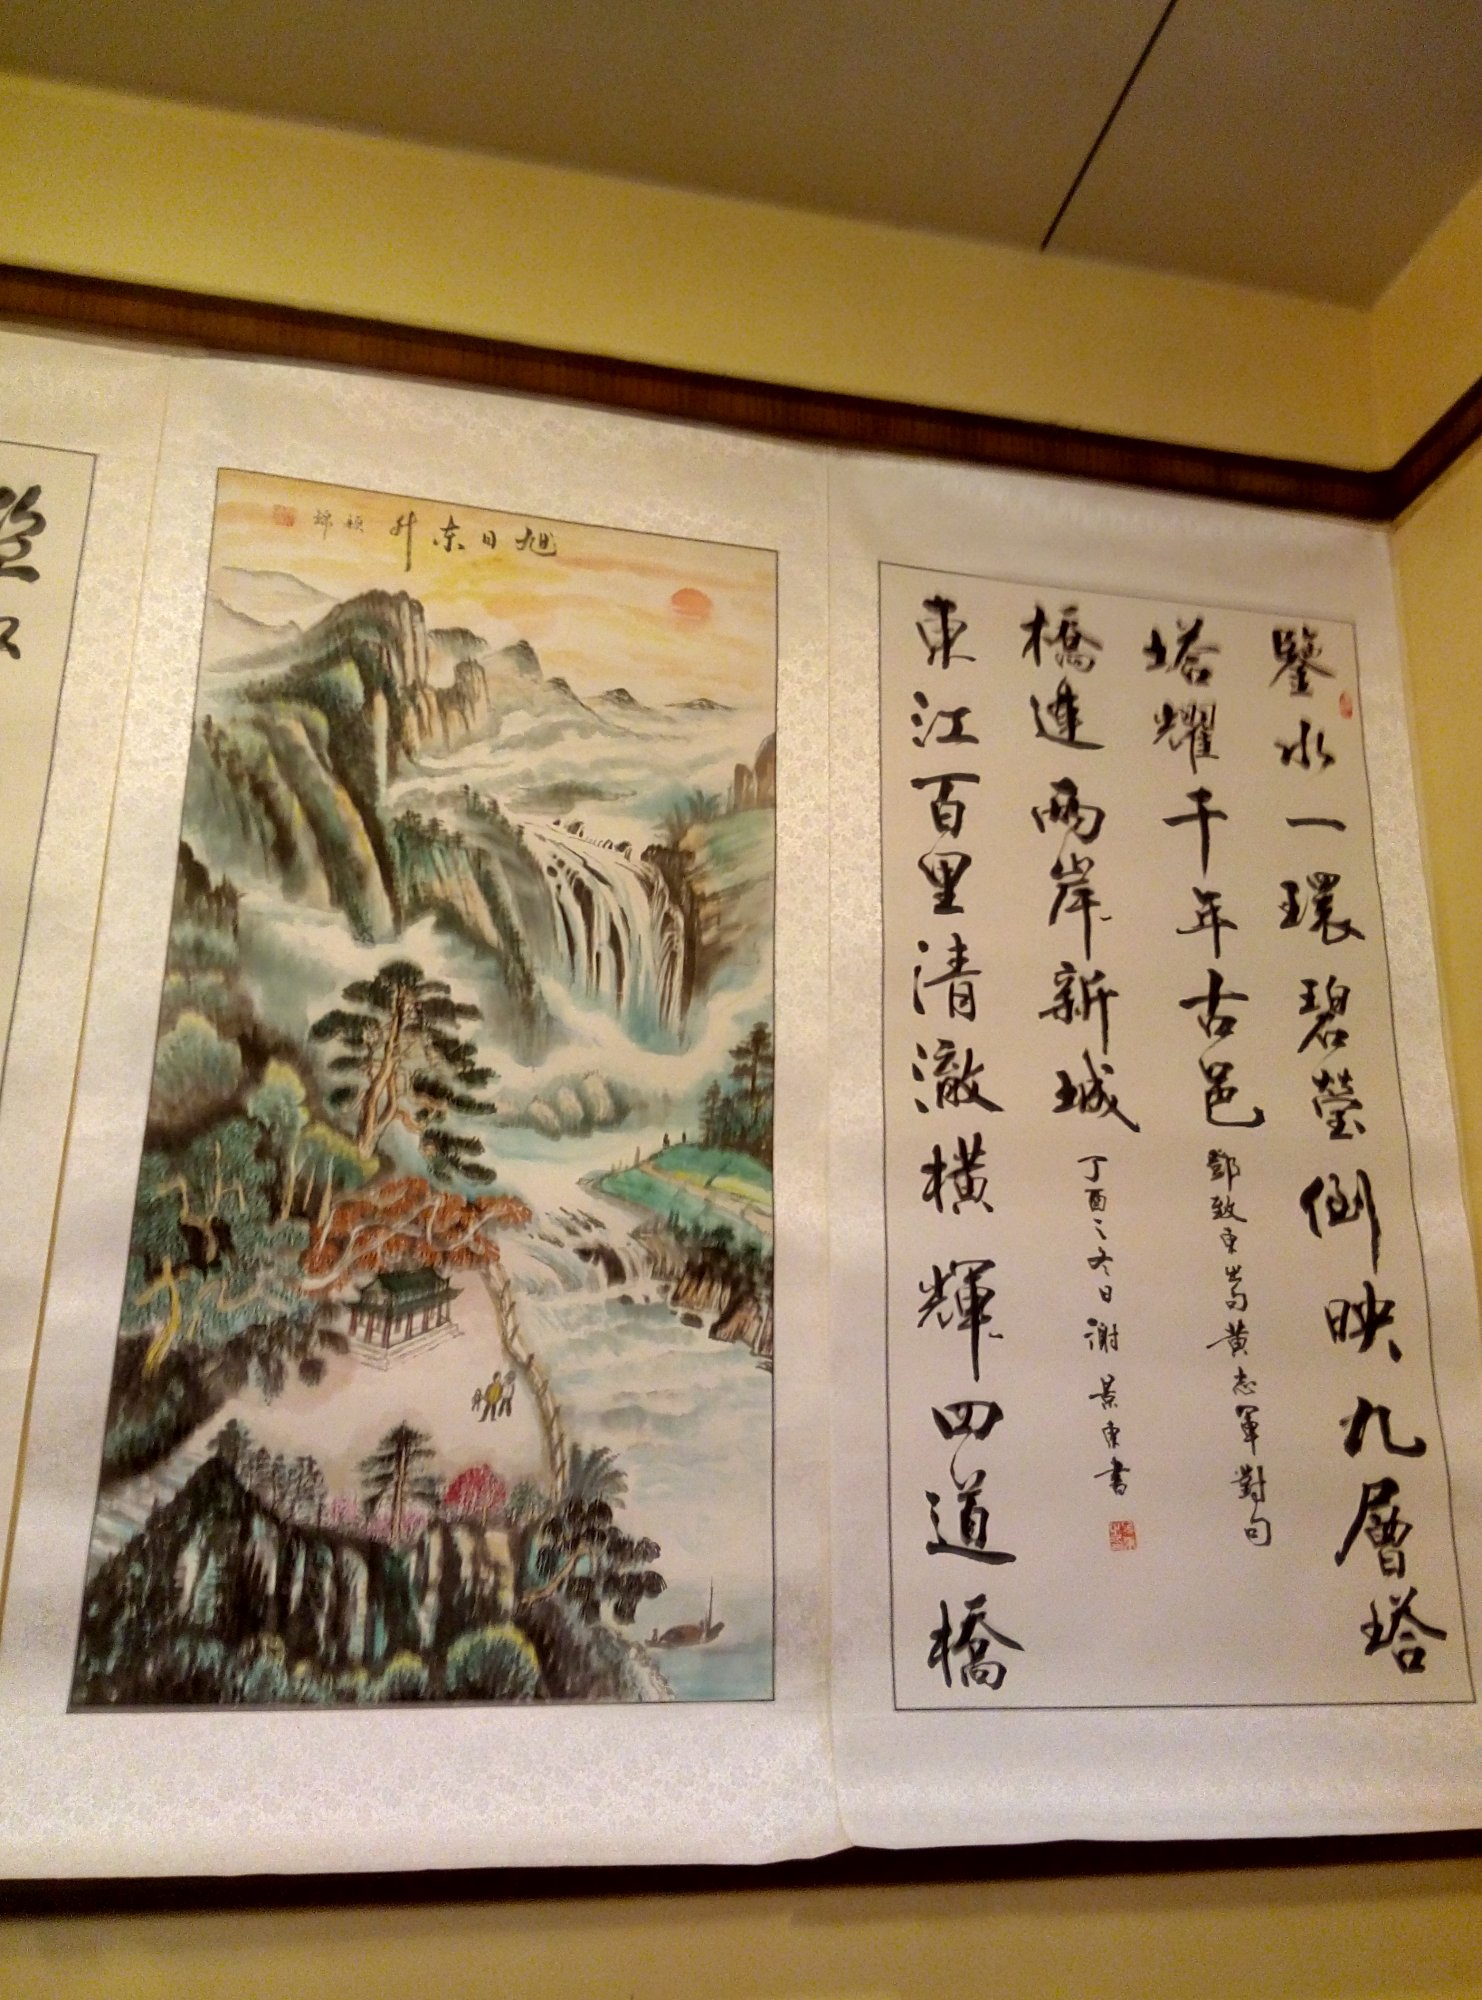 鑒水一環碧瑩倒映九層塔
塔耀千年古邑
鄧致東嵩黃志軍對句
橋連兩岸新城
丁酉之冬日謝景東書
東江百里清澈橫輝四道橋
旭日东升